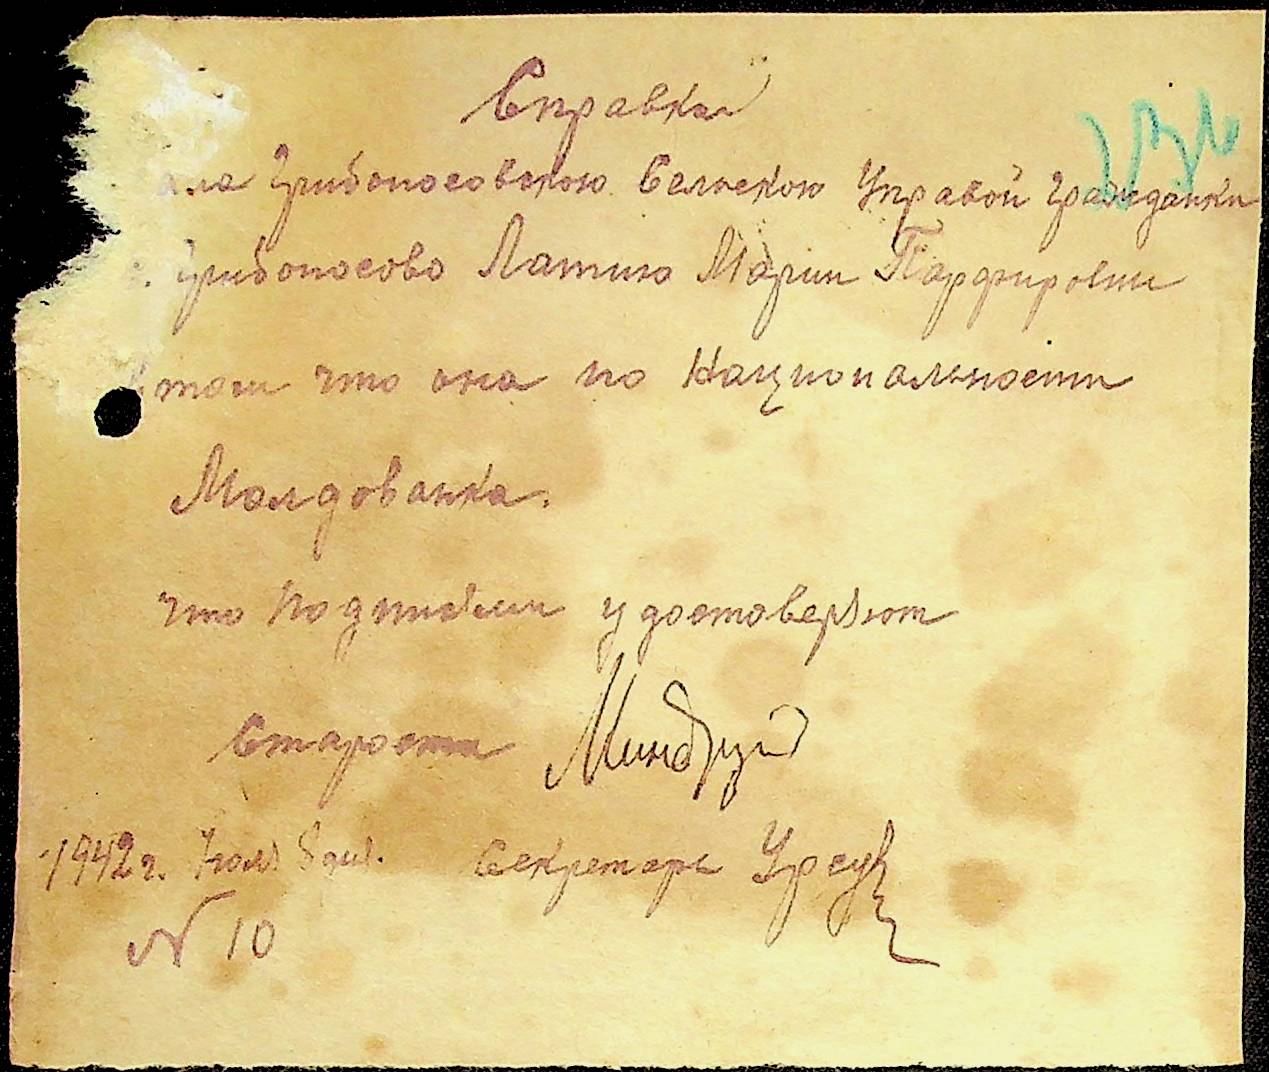 Справка
ала Грибоносовскою Сельскою Управой гражданки
Грибоносово Латию Марии Парфировни
в том что она по Национальности
Молдованка.
что Подписями удостоверяют
Староста
1942 г. Июля 8 дня. Секретарь Урсул
N 10